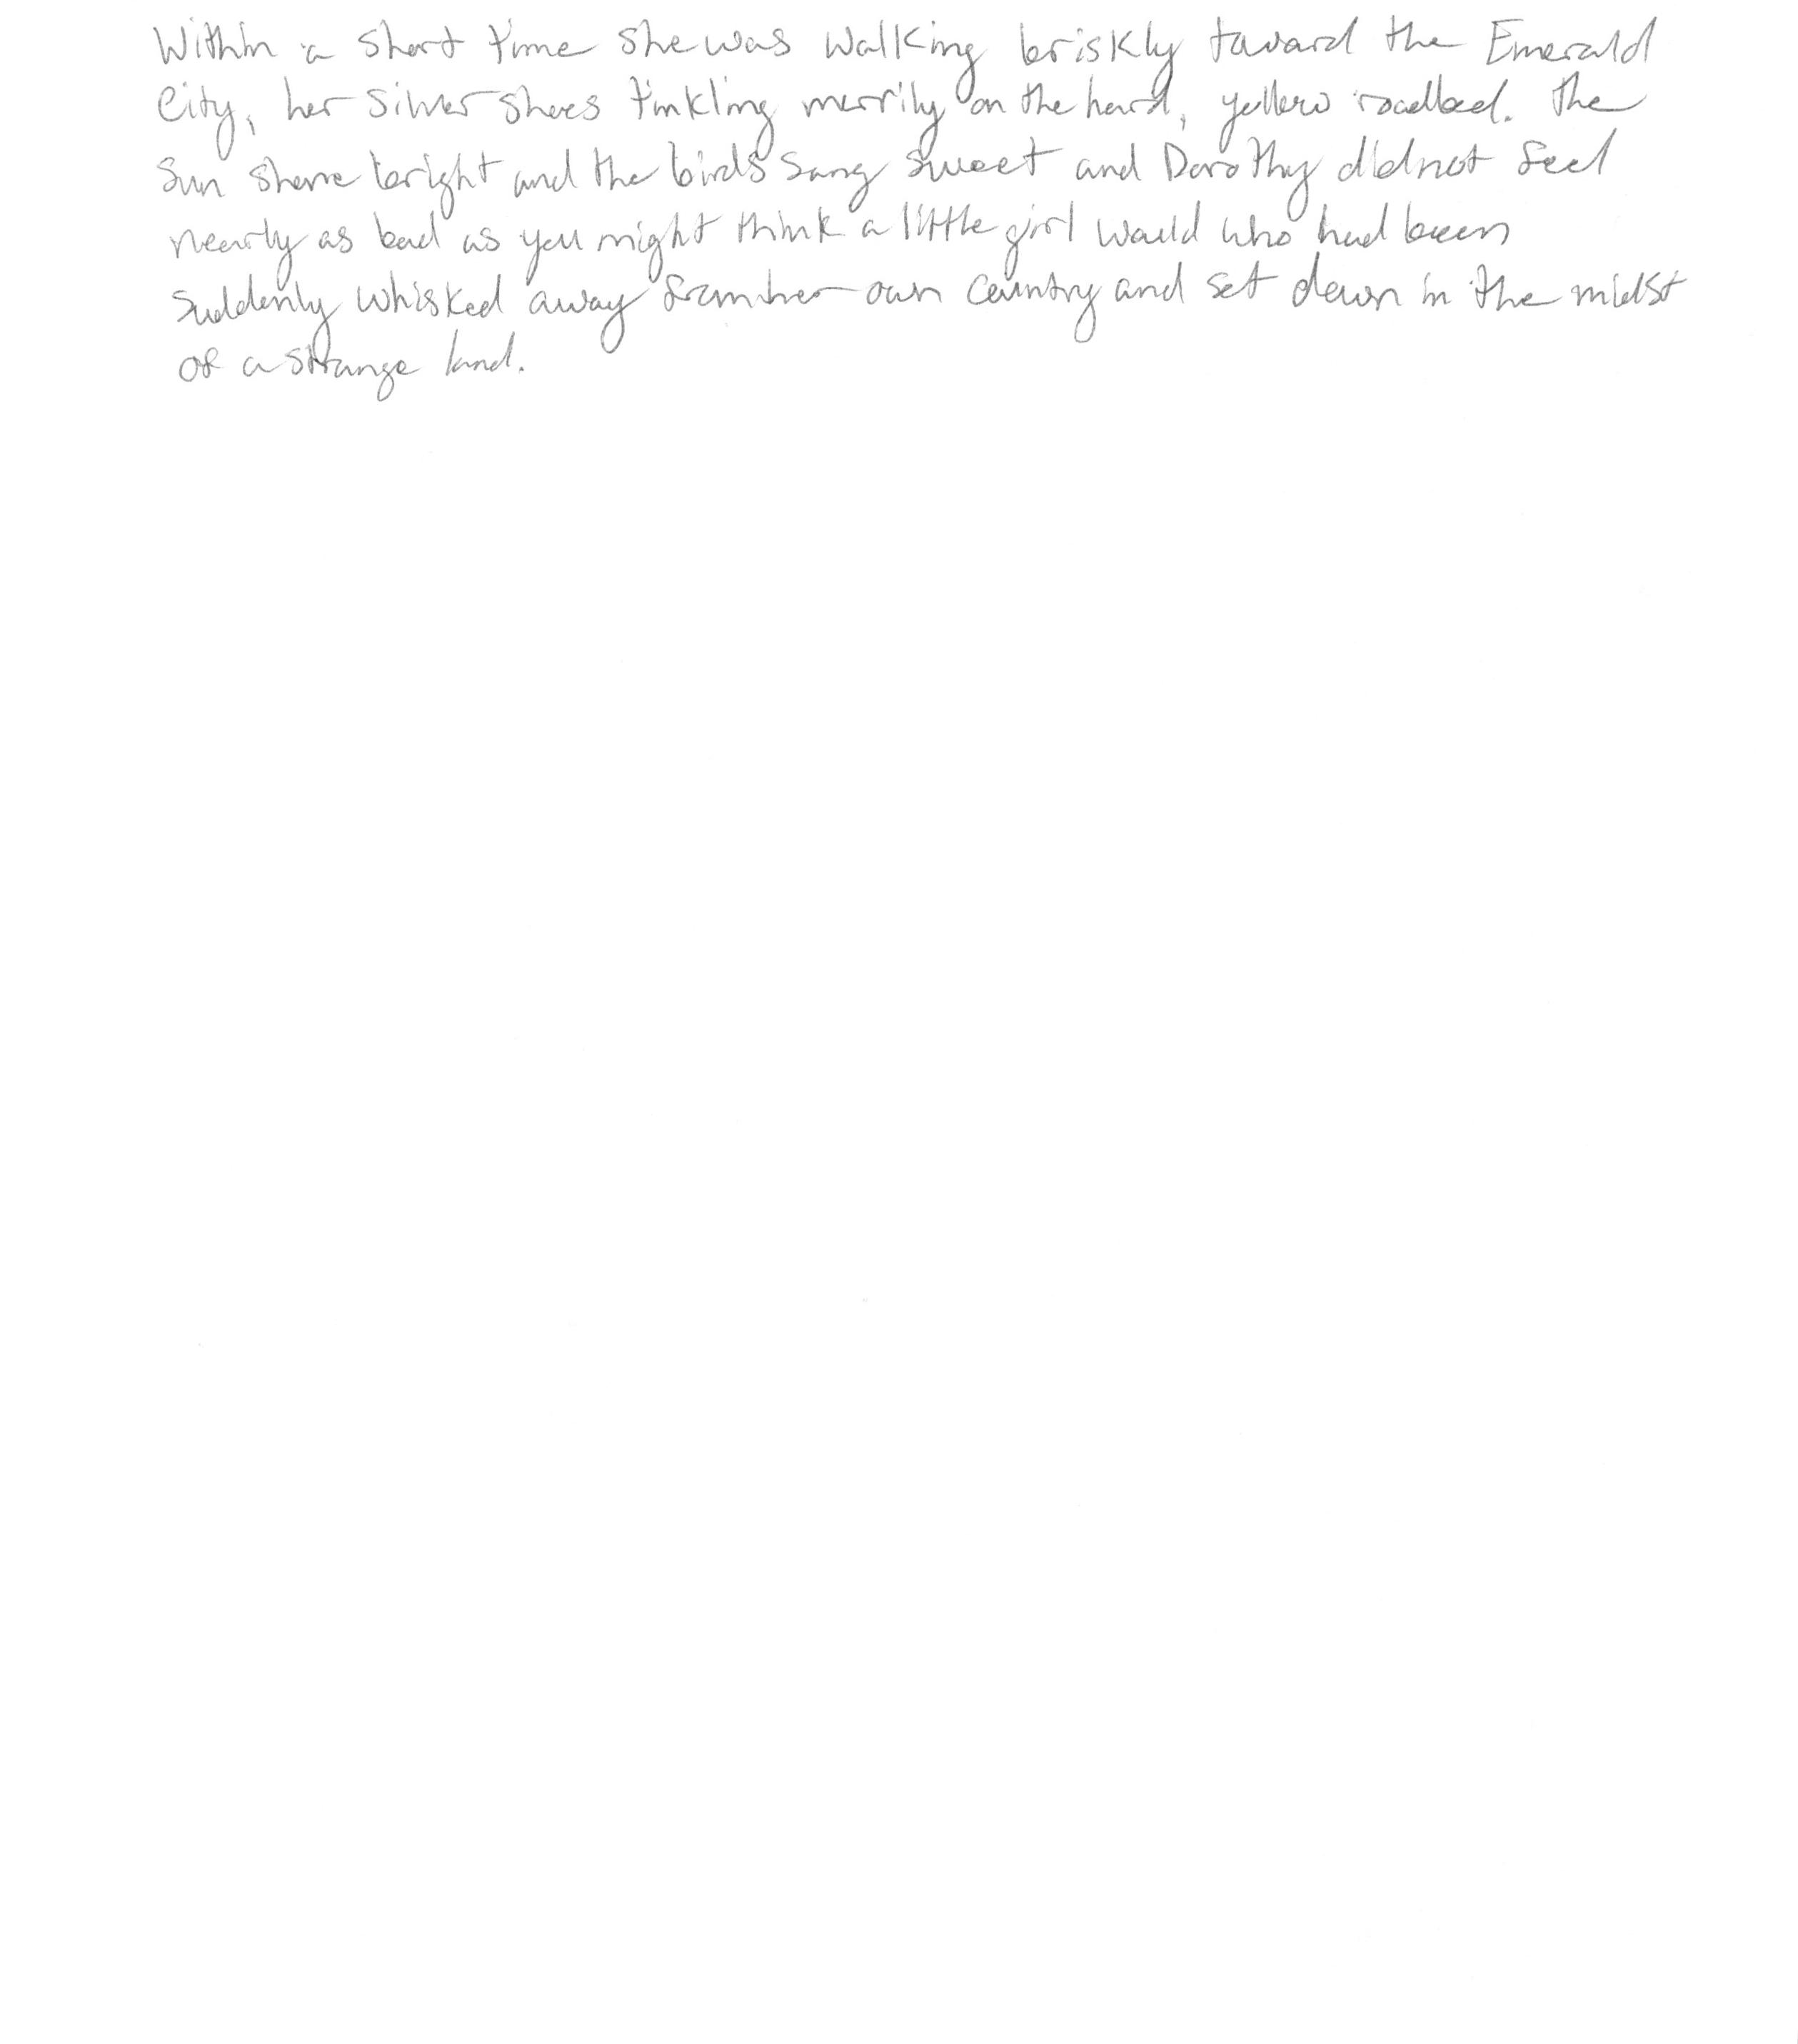 Within a short time she was walking briskly toward the Emerald
City, her silver shoes tinkling merrily on the hard, yellow roadbed. The
sun shone bright and the birds sang sweet and Dorothy did not feel
nearly as bad as you might think a little girl would who had been
suddenly whisked away from her own country and set down in the midst
of a strange land.